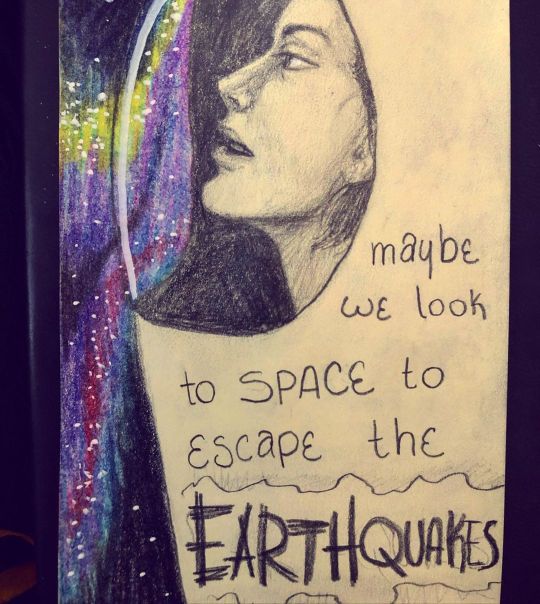 maybe
we look
to SPACE to
Escape the
EARTHQUAKES